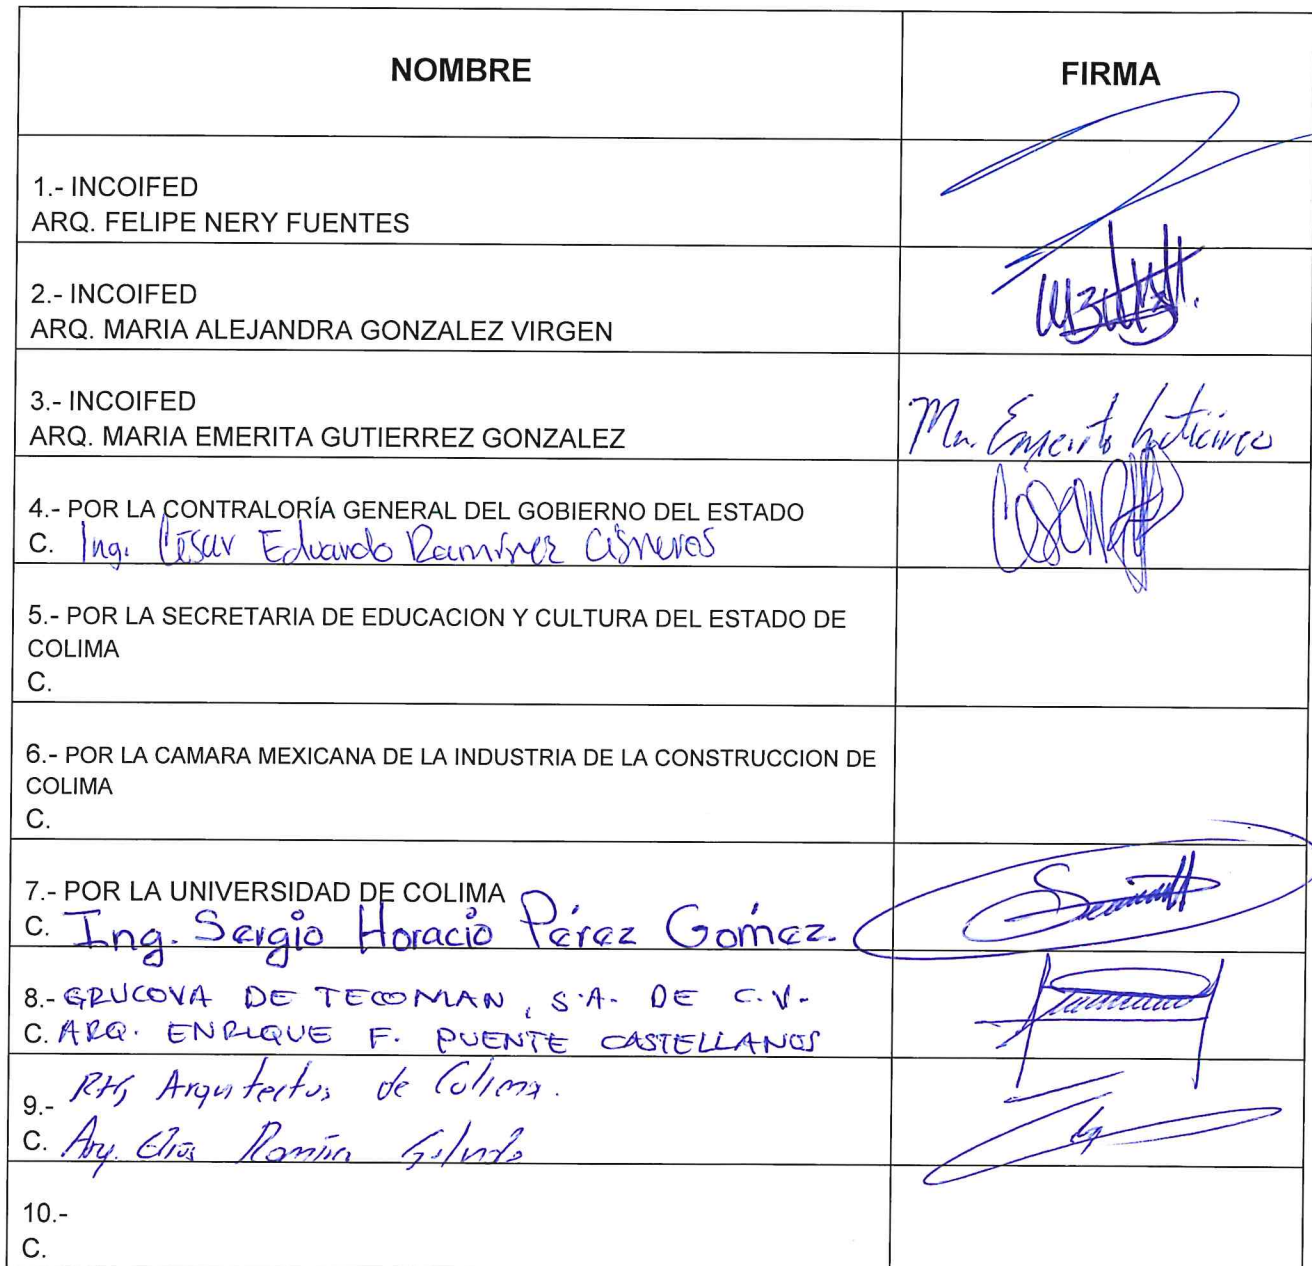 NOMBRE
FIRMA
1.- INCOIFED
ARQ. FELIPE NERY FUENTES
2.- INCOIFED
ARQ. MARIA ALEJANDRA GONZALEZ VIRGEN
3.- INCOIFED
ARQ. MARIA EMERITA GUTIERREZ GONZALEZ
Ma. Emerita Gutierrez
4.- POR LA CONTRALORÍA GENERAL DEL GOBIERNO DEL ESTADO
C. Ing. César Eduardo Ramírez Cisneros
5.- POR LA SECRETARIA DE EDUCACION Y CULTURA DEL ESTADO DE
COLIMA
C.
6.- POR LA CAMARA MEXICANA DE LA INDUSTRIA DE LA CONSTRUCCION DE
COLIMA
C.
7.- POR LA UNIVERSIDAD DE COLIMA
C. Ing. Sergio Horacio Pérez Gómez.
8.- GRUCOVA DE TECOMAN, S.A. DE C.V.
C. ARQ. ENRIQUE F. PUENTE CASTELLANOS
9.- RHG Arquitectos de Colima.
C. Arq. Elias Ramírez
10.-
C.